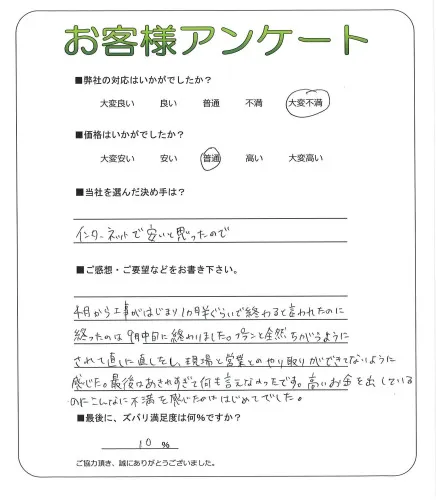 お客様アンケート
■弊社の対応はいかがでしたか?
大変良い 良い 普通 不満 大変不満
■価格はいかがでしたか?
大変安い 安い 普通 高い 大変高い
■当社を選んだ決め手は?
インターネットで安いと思ったので
■ご感想・ご要望などをお書き下さい。
月から工事がはじまり1カ月半ぐらいで終わると言われたのに
終ったのは9月中旬に終わりました。プランと全然ちがうように
されて直し直しをし、現場と営業とのやり取りができてないように
感じた。最後はあきれすぎて何も言えなかったです。高いお金を出している
のにこんなに不満を感じたのははじめてでした。
■最後に、ズバリ満足度は何%ですか?
10 %
ご協力頂き、誠にありがとうございました。